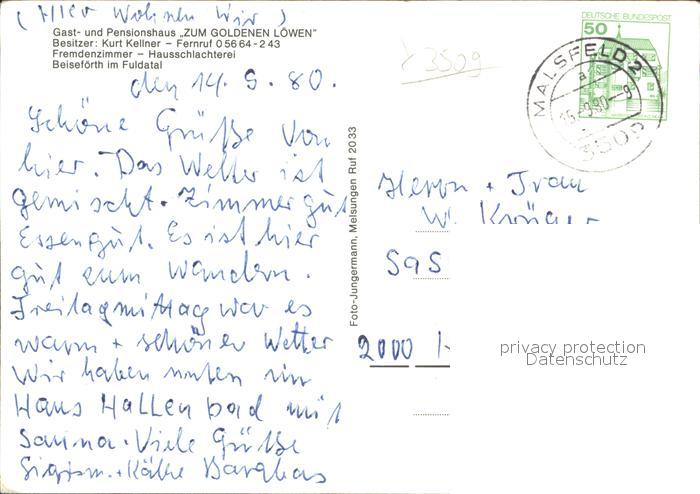 (Hier Wohnen Wir)
Gast- und Pensionshaus „ZUM GOLDENEN LÖWEN“
Besitzer: Kurt Kellner – Fernruf 0 56 64 - 2 43
Fremdenzimmer – Hausschlachterei
Beiseförth im Fuldatal
den 14. 9. 80.
Schöne Grüße von
hier. Das Wetter ist
gemischt. Zimmer gut
Essen gut. Es ist hier
gut zum Wandern.
Freitagmittag war es
warm + schönes Wetter
Wir haben unten im
Haus Hallenbad mit
Sauna. Viele Grüße
+ Käthe
Foto-Jungermann, Melsungen Ruf 20 33
3509
DEUTSCHE BUNDESPOST
50
MALSFELD 2
a
15.-9.80.-9
3509
Herrn + Frau
W. Krüger
2000 H
privacy protection
Datenschutz